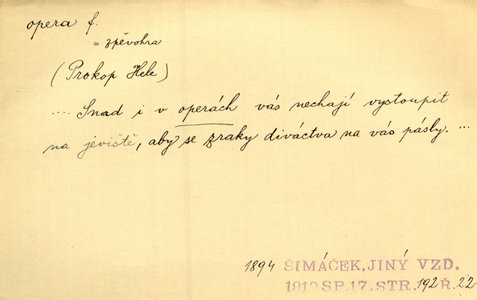 opera f.
= zpěvohra
(Prokop Hele)
.... Snad i v operách vás nechají vystoupit
na jeviště, aby se zraky diváctva na vás pásly. ...
1894 ŠIMÁČEK, JINÝ VZD.
1912 SP. 17. STR. 192 Ř. 22